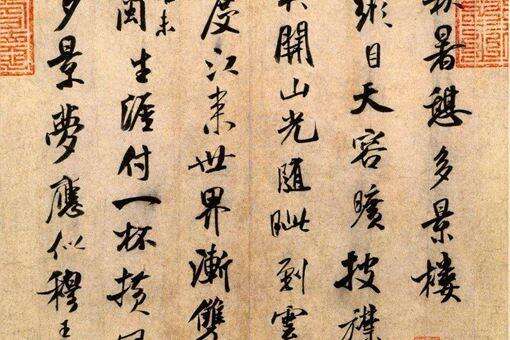 暑憩多景樓
縱目天容曠披襟
開山光隨眦到雲
度江来世界漸雙
未
閩生涯付一杯横
多景夢應似穆王